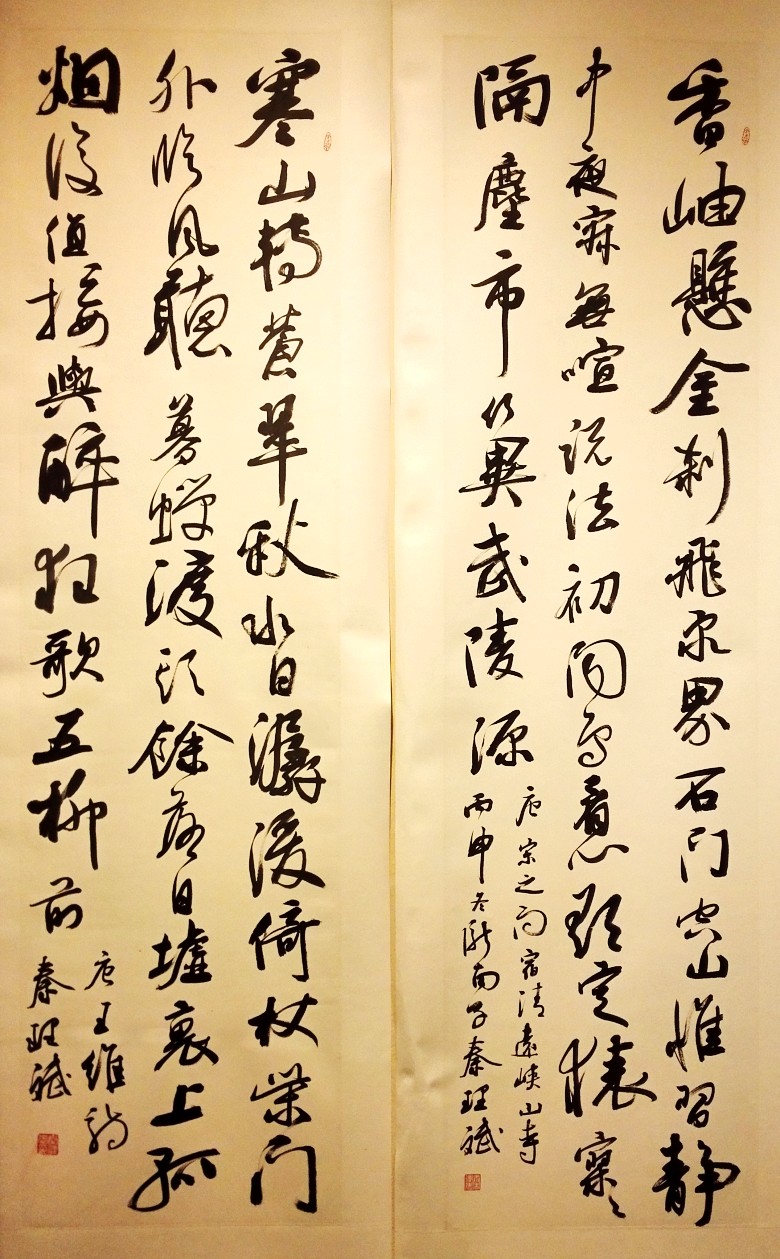 香岫懸金刹飛泉界石門空山惟習靜
中夜寂無喧説法初聞鳥看心欲定猿寥〻
隔塵市何異武陵源
唐宋之问宿清遠峽山寺
丙申冬陇西子秦理斌
寒山轉蒼翠秋水日潺湲倚杖柴門
外临風聽暮蟬渡頭餘落日墟裏上孤
烟復值接輿醉狂歌五柳前
唐王維詩
秦理斌